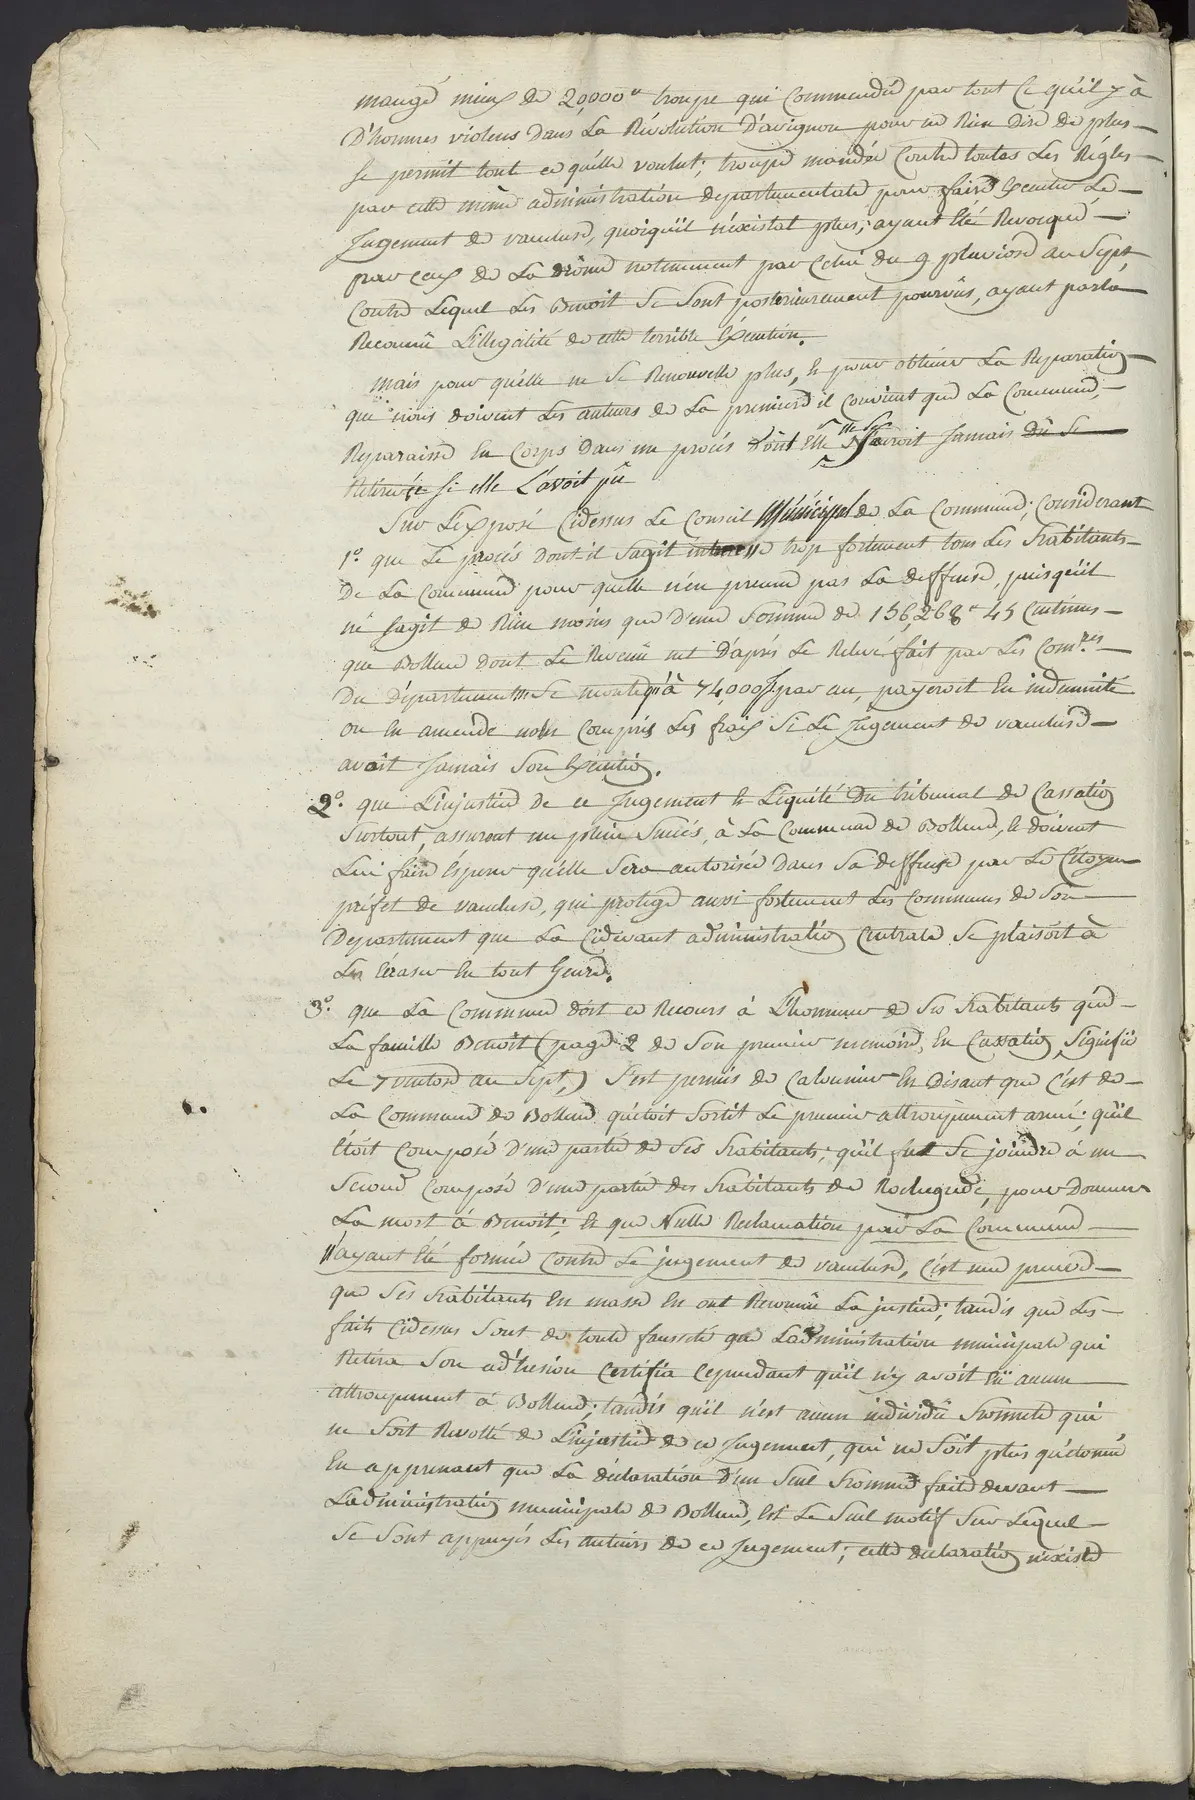 mangé mieux de 20,000ᵗᵗ troupe qui Commendée par tout Ce qu'il y à
D'hommes violens dans La Révolution D'avignon pour ne Rien Dire de plus
se permit tout ce qu'elle voulut; troupe mandée Contre toutes Les Régles
par cette même administration departementale pour faire Executer Le
Jugement de vaucluse, quoiqu'il n'existat plus; ayant Eté Revoqué
par ceux de La drôme notemment par Celui du 9 pluviose an Sept
Contre Lequel Les Benoit Se Sont posterieurement pourvûs, ayant par là
Reconnû L'illegalité de cette terrible Execution.
mais pour qu'elle ne Se Renouvelle plus, Et pour obtenir La Reparation
que nous doivent Les auteurs de La premiere il Convient que La Commune,
Reparaisse En Corps Dans un procés dont Elle Ne Se Seroit Jamais dû Se
Retirée Si elle L'avoit pû
Sur L'Exposé Cidessus Le Conseil Municipal de La Commune; Considerant
1º. que Le procés dont-il S'agit interesse trop fortement tous Les Habitants
De La Commune pour quelle n'en prenne pas La deffense, puisqu'il
ne S'agit de Rien moins que D'une Somme de 156,268ᵗᵗ 45 Centimes
que Bollene dont Le Revenû net D'aprés Le Relevé fait par Les Com.ʳᵉˢ
Du Département Se monte qu'à 74,000ᶠ par an, payeroit En indemnité
ou En amende non Compris Les fraix Si Le Jugement de vaucluse
avoit Jamais Son Execution.
2º. que L'injustice de ce Jugement Et L'équité Du tribunal de Cassation
Surtout, assurent un plein Succés, à La Commune de Bollene, Et doivent
Lui faire Esperer qu'elle Sera autorisée Dans Sa deffense par Le Citoyen
préfet de vaucluse, qui protege aussi fortement Les Communes de Son
Departement que La Cidevant administration Centrale Se plaisoit à
Les Ecraser En tout Genre.
3º. que La Commune doit ce Recours à L'honneur de Ses Habitants que
La famille Benoit (page 2 de Son premier memoire, En Cassation, Signifié
Le 7 ventose an Sept,) S'est permis de Calomnier En Disant que C'est de
La Commune de Bollene qu'étoit Sortit Le premier attroupement armé; qu'il
Etoit Composé D'une partie de Ses Habitants; qu'il fut Se joindre à un
Second Composé D'une partie des Habitants de Rochegude, pour Donner
La mort à Benoit; Et que Nulle Reclamation par La Commune
N'ayant Eté formée Contre Le jugement de vaucluse, C'est une preuve
que Ses Habitants En masse En ont Reconnû La justice; tandis que Les
faits Cidessus Sont de toute fausseté que L'administration municipale qui
Retira Son adhesion Certifia Cependant qu'il n'y avoit Eü aucun
attroupement à Bollene; tandis qu'il n'est aucun individû Honnete qui
ne Soit Revolté de L'injustice de ce Jugement, qui ne Soit plus qu'étonné
En apprenant que La déclaration D'un Seul Homme faite devant
L'administration municipale de Bollene, Est Le Seul motif Sur Lequel
Se Sont appuyés Les auteurs de ce Jugement; cette declaration n'existe